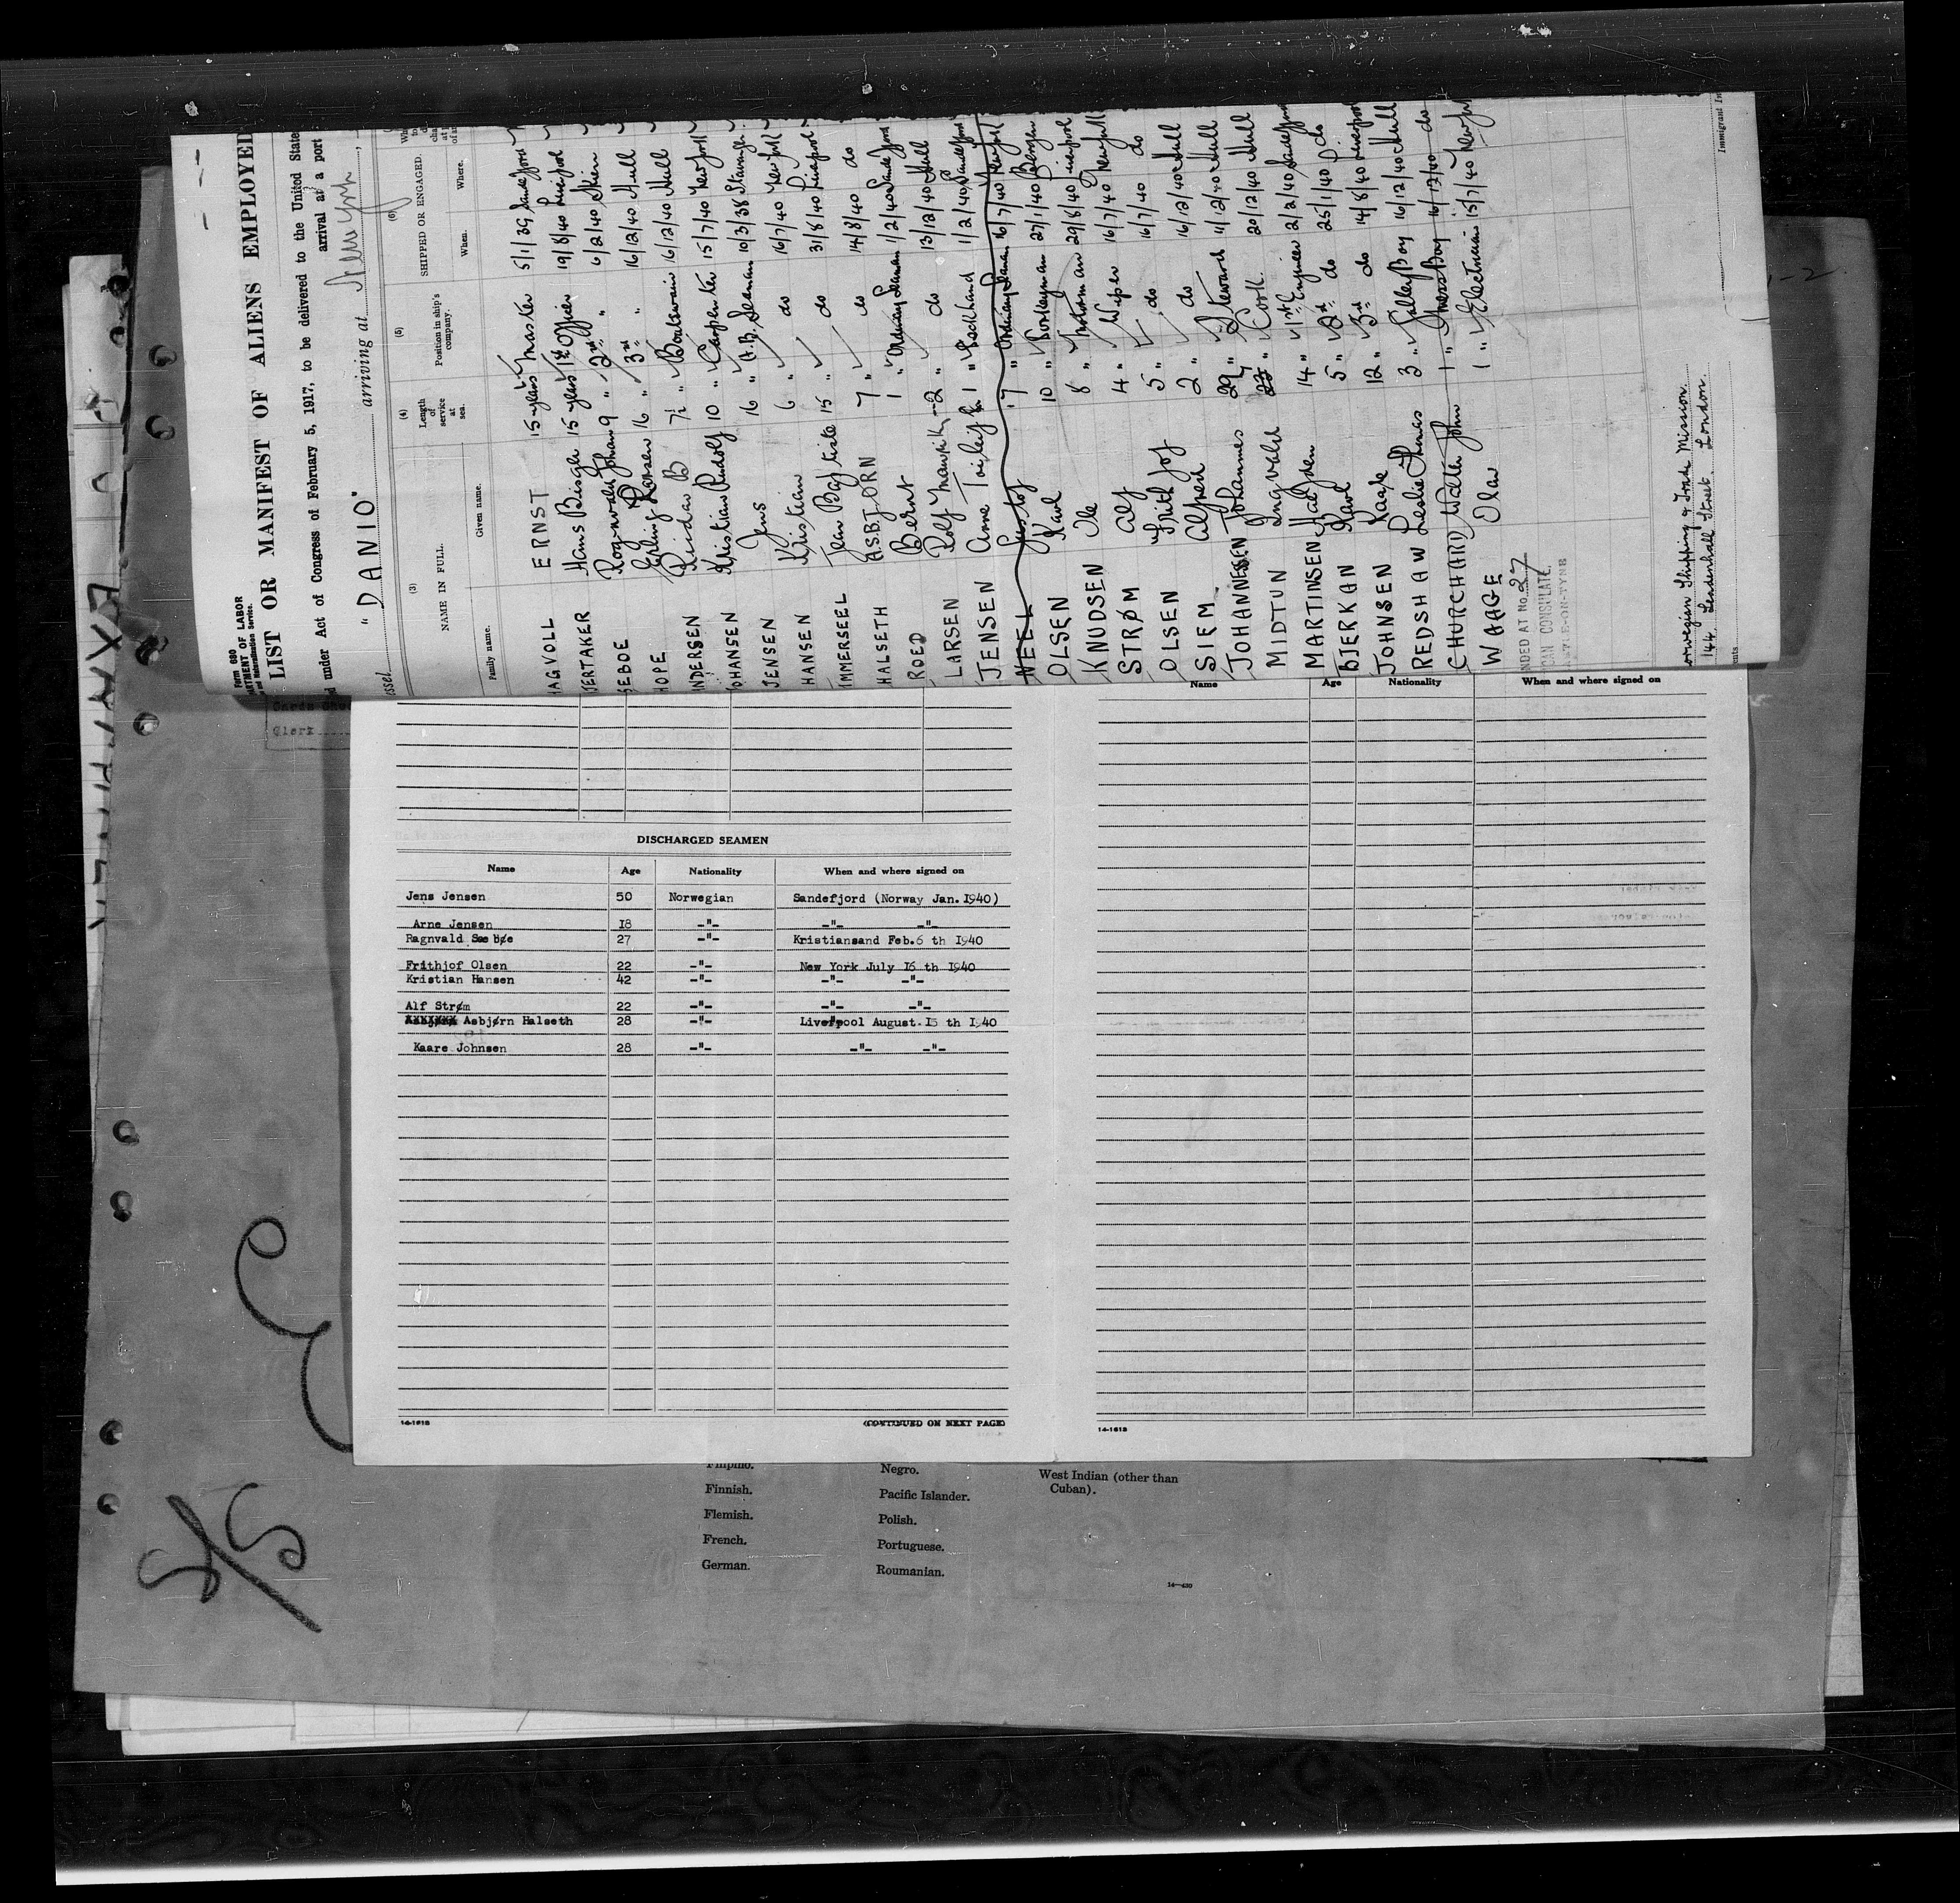 Form 680
LIST OR MANIFEST OF ALIENS EMPLOYED
under Act of Congress of February 5, 1917, to be delivered to the United State
arrival at a port
"DANIO" arriving at New York,
(3) (4) (5) (6)
NAME IN FULL. Length of service at sea. Position in ship's company. SHIPPED OR ENGAGED.
Family name. Given name. When. Where.
AGVOLL ERNST 15 years Master 5/1/39
JERTAKER Hans 15 years 1st Officer 19/8/40 Liverpool
SEBOE 9 " 2nd " 6/2/40
HOPE Erling 16 " 3rd " 16/12/40 Hull
NDERSEN Reidar B 7½ " Boatswain 16/12/40 Hull
OHANSEN Kristian Rudolf 10 " Carpenter 15/7/40 New York
JENSEN Jens 16 " A.B. Seaman 10/3/38
HANSEN Kristian 6 " do 16/7/40 New York
IMMERSEEL Jean Baptiste 15 " do 31/8/40 Liverpool
HALSETH ASBJORN 7 " do 14/8/40 do
ROED Bernt 1 " Ordinary Seaman 1/2/40 Sandefjord
LARSEN Rolf 2 " do 13/12/40 Hull
JENSEN Arne 1 " Deckhand 1/2/40 Sandefjord
NEEL 7 " Ordinary Seaman 16/7/40 New York
OLSEN Karl 10 " 27/1/40 Bergen
KNUDSEN Ole 8 " Motorman 29/8/40 Liverpool
STRØM Alf 4 " Wiper 16/7/40 New York
OLSEN Frithjof 5 " do 16/7/40 do
SIEM Alfred 2 " do 16/12/40 Hull
JOHANNESSEN Johannes 29 " Steward 11/12/40 Hull
MIDTUN Ingvald " Cook 20/12/40 Hull
MARTINSEN 14 " 1st Engineer 2/2/40 Sandefjord
BJERKAN Karl 5 " 2nd do 25/1/40 do
JOHNSEN Kaare 12 " 3rd do 14/8/40 Liverpool
REDSHAW Leslie Thomas 3 " Galley Boy 16/12/40 Hull
CHURCHARD Walter John 1 " Mess Boy 16/12/40 do
WAAGE Olav 1 " Electrician 15/7/40 New York
NDED AT No. 27
CAN CONSULATE,
TLE-ON-TYNE
orwegian Shipping & Trade Mission.
144 Leadenhall Street. London.
Immigrant In
Clerk
DISCHARGED SEAMEN
Name Age Nationality When and where signed on
Jens Jensen 50 Norwegian Sandefjord (Norway Jan. 1940)
Arne Jensen 18 -"- -"- -"-
Ragnvald Sæbøe 27 -"- Kristiansand Feb.6 th 1940
Frithjof Olsen 22 -"- New York July 16 th 1940
Kristian Hansen 42 -"- -"- -"-
Alf Strøm 22 -"- -"- -"-
Asbjørn Halseth 28 -"- Liverpool August. 15 th 1940
Kaare Johnsen 28 -"- -"- -"-
14-1618 (CONTINUED ON NEXT PAGE)
Name Age Nationality When and where signed on
14-1618
Filipino. Negro. West Indian (other than
Finnish. Pacific Islander. Cuban).
Flemish. Polish.
French. Portuguese.
German. Roumanian.
14-430